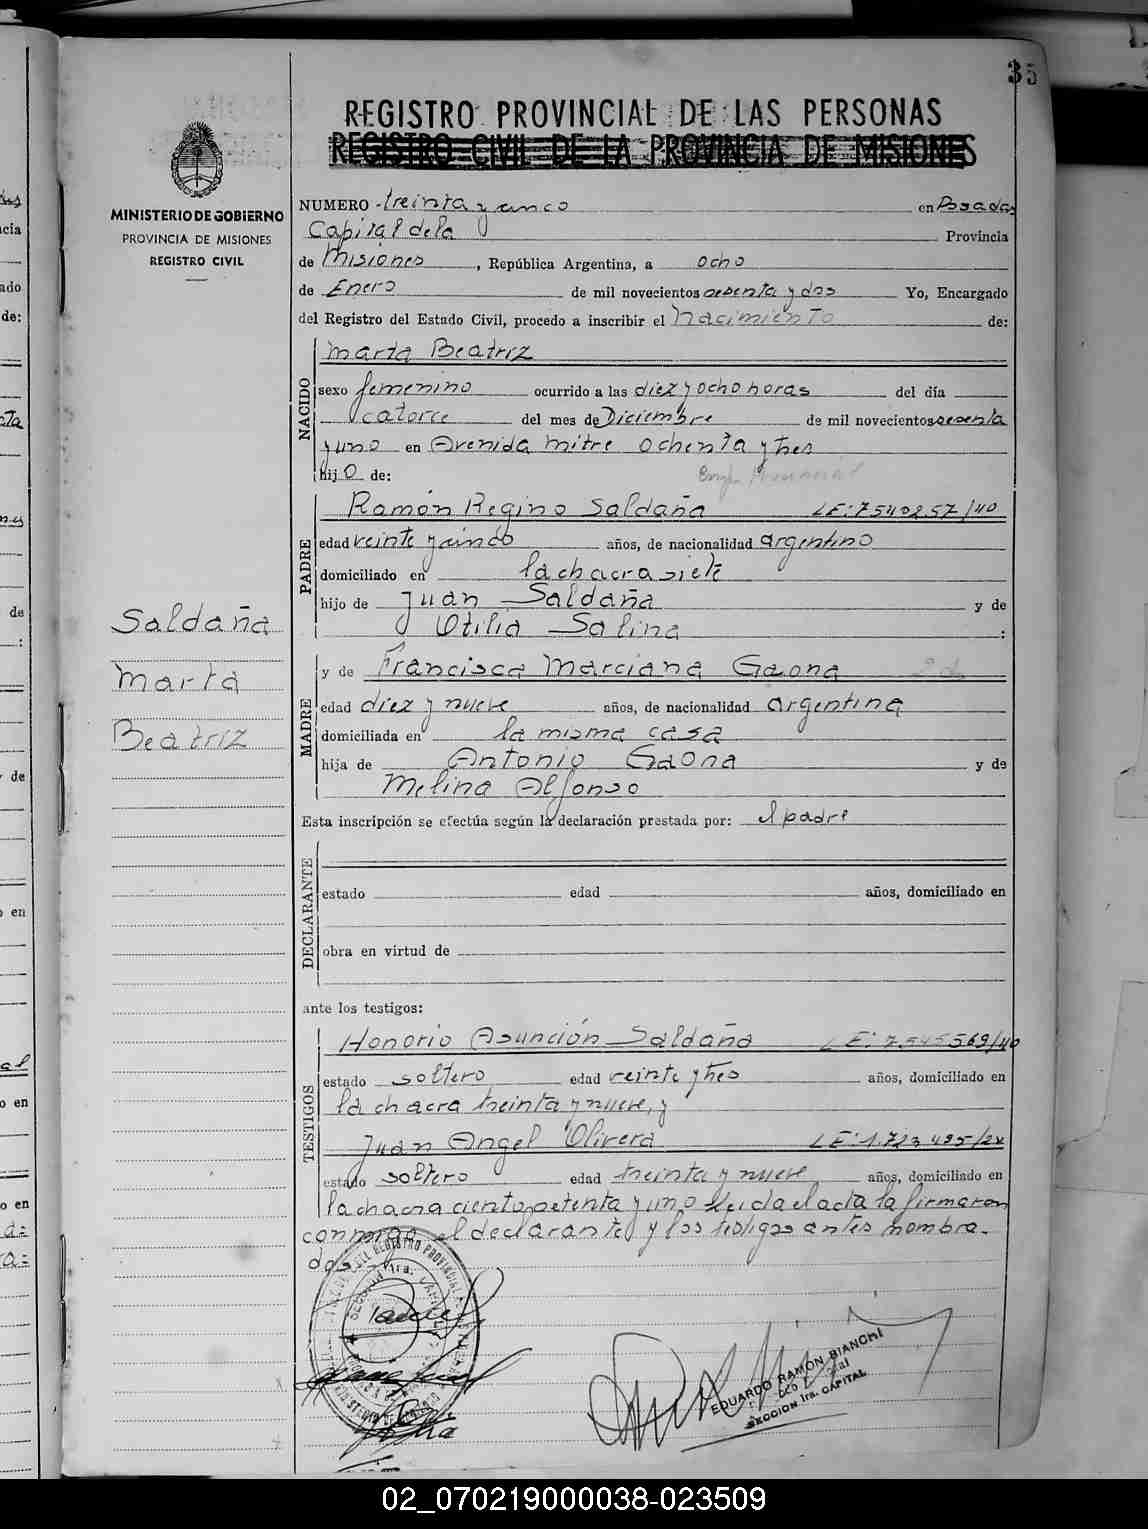 35
REGISTRO PROVINCIAL DE LAS PERSONAS
REGISTRO CIVIL DE LA PROVINCIA DE MISIONES
MINISTERIO DE GOBIERNO
PROVINCIA DE MISIONES
REGISTRO CIVIL
NUMERO treinta y cinco en Posadas
Capital de la Provincia
de Misiones, República Argentina, a ocho
de Enero de mil novecientos sesenta y dos Yo, Encargado
del Registro del Estado Civil, procedo a inscribir el Nacimiento de:
NACIDO
Marta Beatriz
sexo femenino ocurrido a las diez y ocho horas del día
catorce del mes de Diciembre de mil novecientos sesenta
y uno en Avenida Mitre ochenta y tres
hij O de:
PADRE
Ramón Regino Saldaña LE: 7540257/40
edad veinte y cinco años, de nacionalidad argentino
domiciliado en la chacra siete
hijo de Juan Saldaña y de
Otilia Salina :
Saldaña
Marta
Beatriz
MADRE
y de Francisca Marciana Gaona
edad diez y nueve años, de nacionalidad argentina
domiciliada en la misma casa
hija de Antonio Gaona y de
Melina Alfonso
Esta inscripción se efectúa según la declaración prestada por: el padre
DECLARANTE
estado edad años, domiciliado en
obra en virtud de
ante los testigos:
TESTIGOS
Honorio Asunción Saldaña LE: 7.545569/40
estado soltero edad veinte y tres años, domiciliado en
la chacra treinta y nueve, y
Juan Angel Olivera LE: 1.713495/
estado soltero edad treinta y nueve años, domiciliado en
la chacra ciento setenta y uno Leida el acta la firmaron
conmigo el declarante y los testigos antes nombra-
dos
EDUARDO RAMON BIANCHI
SECCION 1ra. CAPITAL
02_070219000038-023509